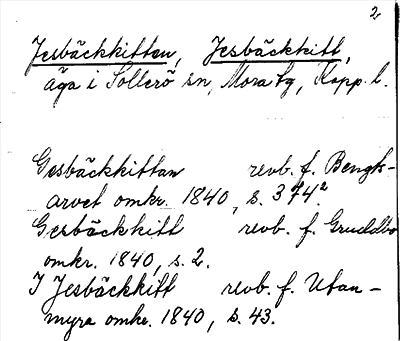 2
Jesbäckkitten, Jesbäckkitt,
äga i Sollerö sn, Mora tg, Kopp. l.
Gesbäckkittan revb. f. Bengts-
arvet omkr. 1840, s. 374².
Gesbäckkitt revb. f. Gruddbo
omkr. 1840, s. 2.
I Jesbäckkitt revb. f. Utan-
myra omkr. 1840, s. 43.